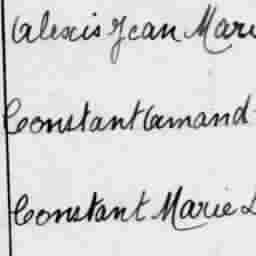 Alexis Jean Mari
Constant Amand
Constant Marie L